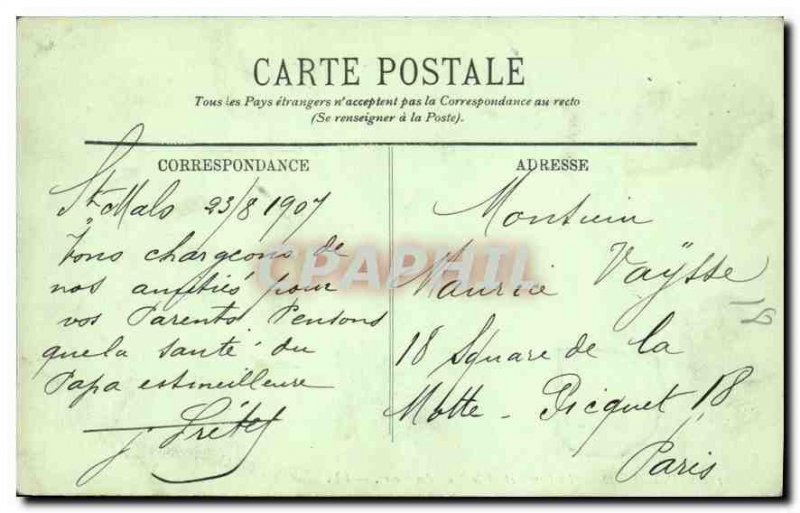 CARTE POSTALE
Tous les Pays étrangers n'acceptent pas la Correspondance au recto
(Se renseigner à la Poste).
CORRESPONDANCE
St Malo 23/8 1907
Vous chargeons de
nos amitiés pour
vos Parents Pensons
que la santé du
Papa est meilleure
ADRESSE
Monsieur
Maurice Vaÿsse
18 Square de la
Motte-Picquet 18
Paris
CPAPHIL